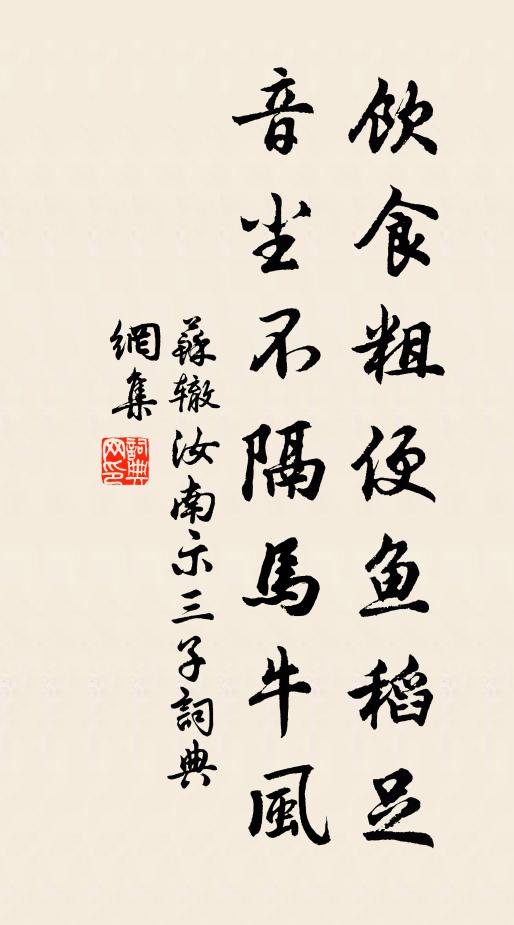 飲食粗便魚稻足
音尘不隔馬牛風
蘇辙汝南示三子詞典
網集
詞典網印